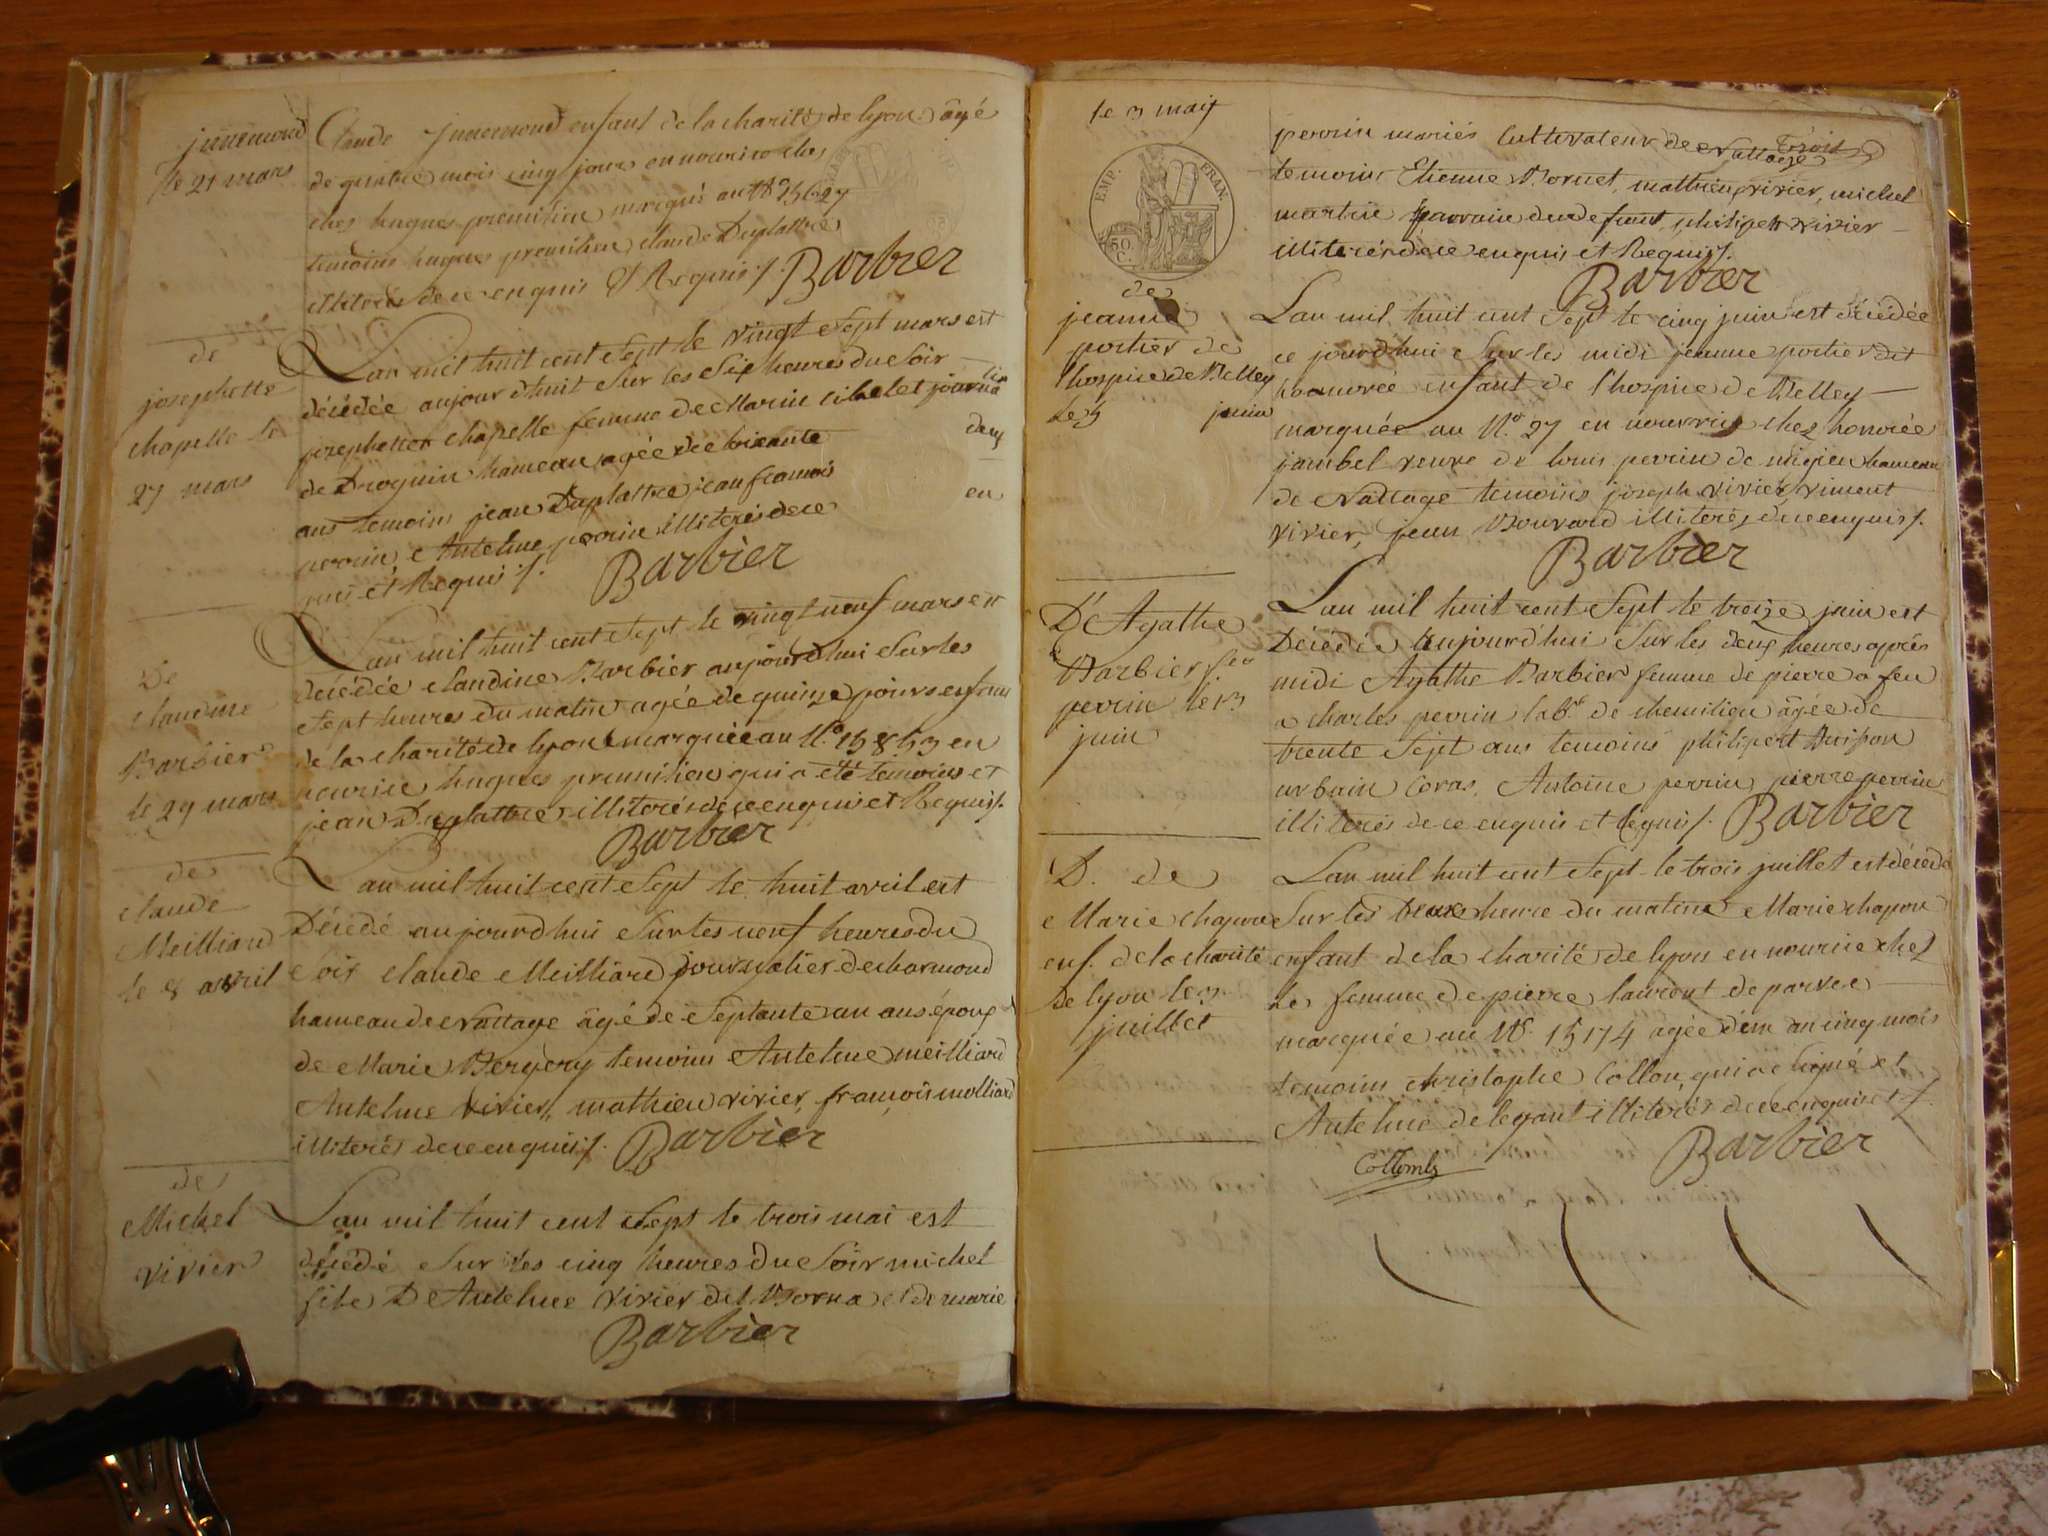 le 21 mars
Claude enfant de la charité de lyon âgé
de quatre mois cinq jours en nourice chez
chez hugues premilieu marqué au N°
temoins hugues premilieu claude Duplattre
illiterés de ce enquis & Requis /. Barbier
de
josephette
chapelle le
27 mars
Lan mil huit cent sept le vingt sept mars est
décédée aujourdhuit sur les six heures du soir
josephette chapelle femme de Marin
de hameau agée de
ans temoins jean Duplattre jean francois
perrin, Antelme perrin illiterés de ce
quis et Requis /. Barbier
deux
en
De
claudine
Barbier
le 29 mars
Lan mil huit cent sept le vingt neuf mars est
décédée claudine Barbier aujourdhui sur les
sept heures du matin agée de quinze jours enfant
de la charité de lyon marquée au N° 15853 en
nourice hugues premilieu qui a été temoins et
jean Duplattre illiterés de ce enquis et Requis /.
Barbier
de
claude
Meilliard
le 8 avril
Lan mil huit cent sept le huit avril est
Décédé aujourdhui sur les neuf heures du
soir claude Meilliard journalier de charmond
hameau de Nattage âgé de septante un ans époux
de Marie Bergery temoins Antelme meilliard
Antelme vivier, mathieu vivier, francois molliard
illiterés de ce enquis /. Barbier
de
Michel
vivier
Lan mil huit cent sept le trois mai est
décédé sur les cinq heures du soir michel
fils D'Antelme vivier dit Borna et de marie
Barbier
le 3 mai
EMP. FRAN.
50
C.
perrin mariés cultivateur de Nattage
trois
temoins Etienne Bornet, mathieu vivier, michel
martin parrain du defunt, philipert vivier
illiterés de ce enquis et Requis /.
Barbier
de
jeanne
portier de
l'hospice de Belley
le 5 juin
Lan mil huit cent sept le cinq juin est décédée
ce jourdhui sur les midi jeanne portier dit
honorée enfant de l'hospice de Belley
marquée au N° 27 en nourrice chez honorée
jambel veuve de louis perrin de hameau
de Nattage temoins joseph vivier, viment
vivier, jean Bouvard illiterés de ce enquis /.
Barbier
D'Agathe
Barbier f.
perrin le 13
juin
Lan mil huit cent sept le treize juin est
Décédée aujourd'hui sur les deux heures après
midi Agathe Barbier femme de pierre a feu
a charles perrin lab. de chemilieu âgée de
trente sept ans temoins philipert
urbain Coras, Antoine perrin, pierre perrin
illiterés de ce enquis et requis /. Barbier
D. de
Marie chapon
enf. de la charité
de lyon le 3
juillet
Lan mil huit cent sept le trois juillet est décédé
sur les heure du matin Marie chapon
enfant de la charité de lyon en nourice chez
La femme de pierre laurent de parvee
marquée au N° 15174 agée d'un an cinq mois
temoins christophe Collon, qui a signé et
Antelme delegant illiterés de ce enquis et /.
Collomb Barbier